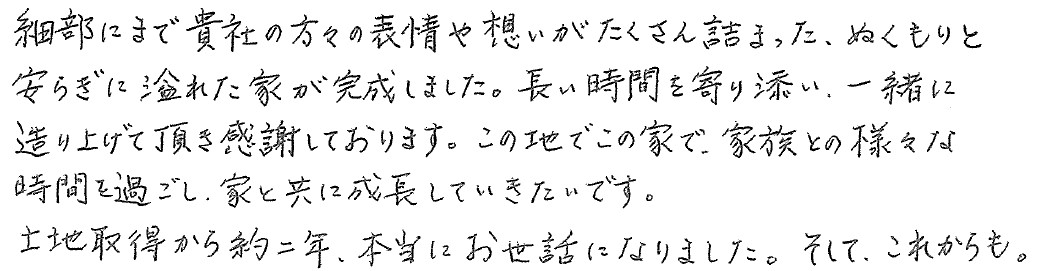 細部にまで貴社の方々の表情や想いがたくさん詰まった、ぬくもりと
安らぎに溢れた家が完成しました。長い時間を寄り添い、一緒に
造り上げて頂き感謝しております。この地でこの家で、家族との様々な
時間を過ごし、家と共に成長していきたいです。
土地取得から約二年、本当にお世話になりました。そして、これからも。